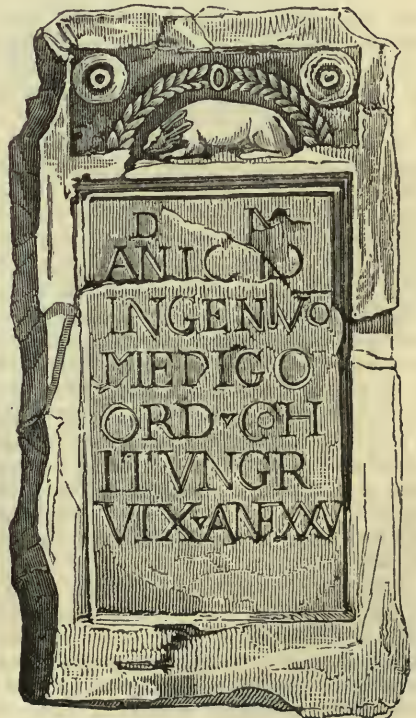 D M
ANICIO
INGENVO
MEDICO
ORD COH
I TVNGR
VIX AN XXV